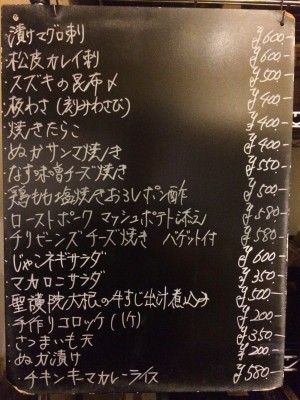 ・漬けマグロ刺 ¥600-
・松皮カレイ刺 ¥600-
・スズキの昆布〆 ¥500-
・板わさ(刻みわさび) ¥400-
・焼きたらこ ¥400-
・ぬかサンマ焼き ¥400-
・なす味噌チーズ焼き ¥550-
・鶏もも塩焼きおろしポン酢 ¥500-
・ローストポーク マッシュポテト添え ¥580-
・チリビーンズチーズ焼き バゲット付 ¥580-
・じゃこネギサラダ ¥600-
・マカロニサラダ ¥350-
・聖護院大根の牛すじ出汁煮込み ¥500-
・手作りコロッケ(1ケ) ¥200-
・さつまいも天 ¥350-
・ぬか漬け ¥200-
・チキンキーマカレーライス ¥580-